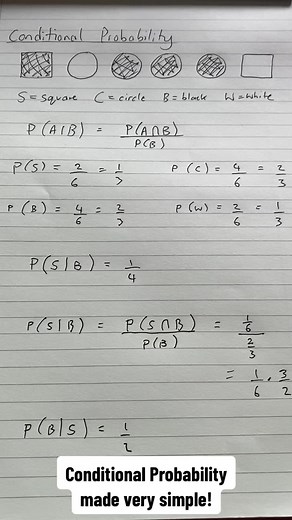 Conditional Probability
S = square C = circle B = black W = white
P(A|B) = P(A∩B) / P(B)
P(S) = 2/6 = 1/3 P(C) = 4/6 = 2/3
P(B) = 4/6 = 2/3 P(W) = 2/6 = 1/3
P(S|B) = 1/4
P(S|B) = P(S∩B) / P(B) = 1/6 / 2/3
= 1/6 . 3/2
P(B|S) = 1/2
Conditional Probability
made very simple!